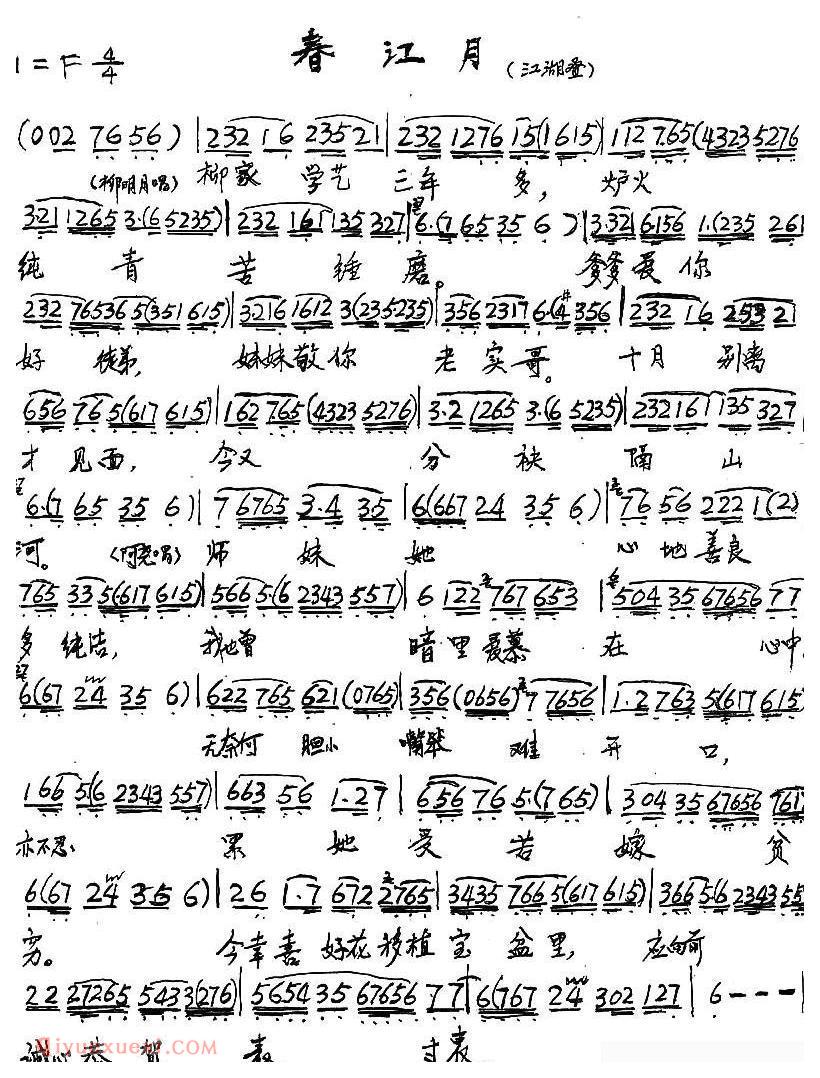 春江月(江湖叠)
1=F 4/4
(002 7656) | 23216 23521 | 232 1276 15(1615) | 112 765(4323 5276
(柳明月唱) 柳家 学艺 三年 多, 炉火
3·21 1265 3·(6 5235) | 232 161 135 327 | 6·(7 65 35 6) | 3·32 6156 1·(235 261
纯 青 苦 锤 磨。 爹爹爱你
232 765365(351 615) | 3216 1612 3(235235) | 356 2317 6·(#4 356 | 232 16 2353 21
好徒弟, 妹妹敬你 老实哥。 十月 别离
656 765(617 615) | 162 765(4323 5276) | 3·2 1265 3·(6 5235) | 232161 135 327
才见面, 今又 分袂隔山
6·(7 65 35 6) | 7 6765 3·4 35 | 6(667 24 35 6) | 76 56 2221(2)
河。 (阿尧唱) 师妹她 心地善良
765 335(617615) | 5665·(6 2343 557) | 6 122 767 653 | 504 35 67656 77
多纯洁, 我也曾 暗里爱慕 在 心中
6(67 24 35 6) | 622 765 621(0765) | 356(0656) 77656 | 1·2 7635(617 615)
无奈何 胆小 嘴笨 难开口,
166 5(6 2343 557) | 663 56 1·27 | 656 76 5·(765) | 304 35 67656 7617
亦不忍 累她受苦嫁贫
6(67 24 356 6) | 26 1·7 672 2765 | 3435 7665(617615) | 3665(6 2343 55
穷。 今幸喜 好花移植宝盆里, 应向前
22 27265 5433(276) | 5654 35 67656 77 | 6(767 24 302 127 | 6---|
诚心恭贺 表寸衷